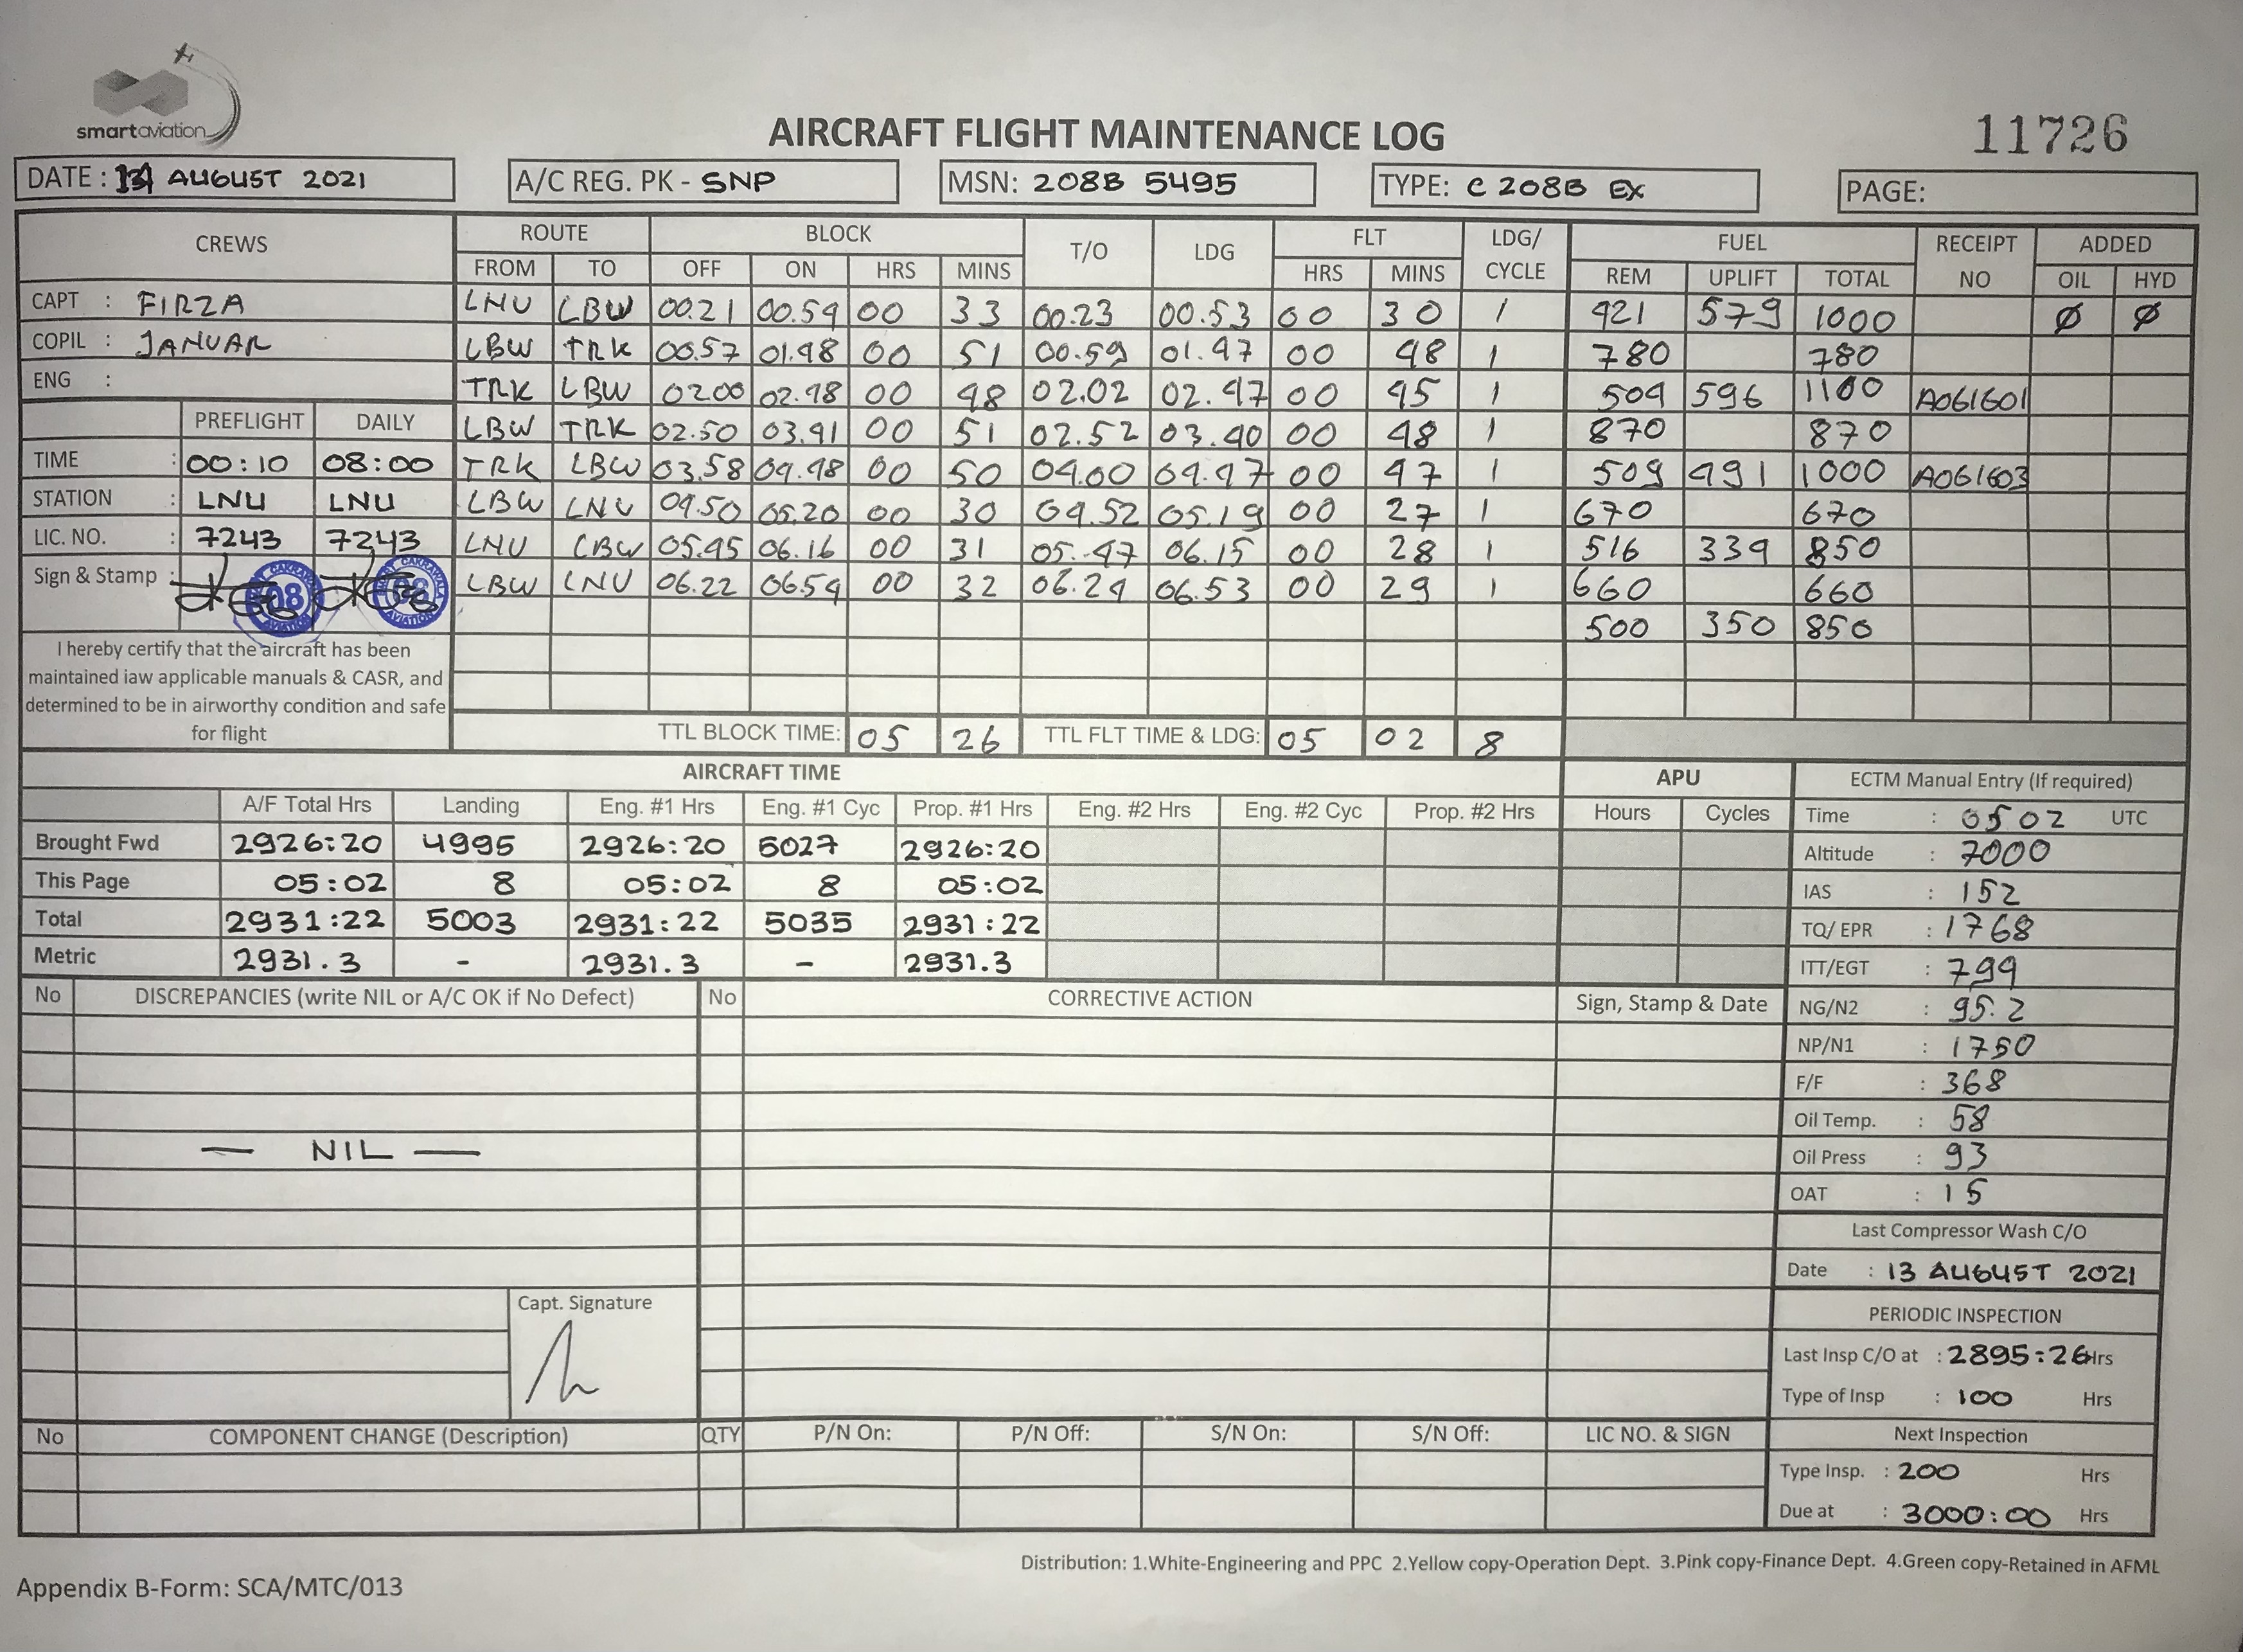 smartaviation
AIRCRAFT FLIGHT MAINTENANCE LOG
11726
DATE : AUGUST 2021
A/C REG. PK - SNP
MSN: 208B 5495
TYPE: C 208B EX
PAGE:
CREWS ROUTE BLOCK T/O LDG FLT LDG/ CYCLE FUEL RECEIPT NO ADDED
FROM TO OFF ON HRS MINS HRS MINS REM UPLIFT TOTAL OIL HYD
CAPT : FIRZA LNU LBW 00.21 00.54 00 33 00.23 00.53 00 30 1 421 579 1000 Ø Ø
COPIL : JANUAR LBW TRK 00.57 01.48 00 51 00.59 01.47 00 48 1 780 780
ENG : TRK LBW 02.00 02.48 00 48 02.02 02.47 00 45 1 504 596 1100 A061601
PREFLIGHT DAILY LBW TRK 02.50 03.41 00 51 02.52 03.40 00 48 1 870 870
TIME : 00:10 08:00 TRK LBW 03.58 04.48 00 50 04.00 04.47 00 47 1 509 491 1000 A061603
STATION : LNU LNU LBW LNU 04.50 05.20 00 30 04.52 05.19 00 27 1 670 670
LIC. NO. : 7243 7243 LNU LBW 05.45 06.16 00 31 05.47 06.15 00 28 1 516 334 850
Sign & Stamp : LBW LNU 06.22 06.54 00 32 06.24 06.53 00 29 1 660 660
500 350 850
I hereby certify that the aircraft has been
maintained iaw applicable manuals & CASR, and
determined to be in airworthy condition and safe
for flight
TTL BLOCK TIME: 05 26 TTL FLT TIME & LDG: 05 02 8
AIRCRAFT TIME APU
A/F Total Hrs Landing Eng. #1 Hrs Eng. #1 Cyc Prop. #1 Hrs Eng. #2 Hrs Eng. #2 Cyc Prop. #2 Hrs Hours Cycles
Brought Fwd 2926:20 4995 2926:20 5027 2926:20
This Page 05:02 8 05:02 8 05:02
Total 2931:22 5003 2931:22 5035 2931:22
Metric 2931.3 - 2931.3 - 2931.3
ECTM Manual Entry (If required)
Time : 0502 UTC
Altitude : 7000
IAS : 152
TQ/ EPR : 1768
ITT/EGT : 799
NG/N2 : 95.2
NP/N1 : 1750
F/F : 368
Oil Temp. : 58
Oil Press : 93
OAT : 15
Last Compressor Wash C/O
Date : 13 AUGUST 2021
PERIODIC INSPECTION
Last Insp C/O at : 2895:26 Hrs
Type of Insp : 100 Hrs
Next Inspection
Type Insp. : 200 Hrs
Due at : 3000:00 Hrs
No DISCREPANCIES (write NIL or A/C OK if No Defect) No CORRECTIVE ACTION Sign, Stamp & Date
— NIL —
Capt. Signature
No COMPONENT CHANGE (Description) QTY P/N On: P/N Off: S/N On: S/N Off: LIC NO. & SIGN
Distribution: 1.White-Engineering and PPC 2.Yellow copy-Operation Dept. 3.Pink copy-Finance Dept. 4.Green copy-Retained in AFML
Appendix B-Form: SCA/MTC/013